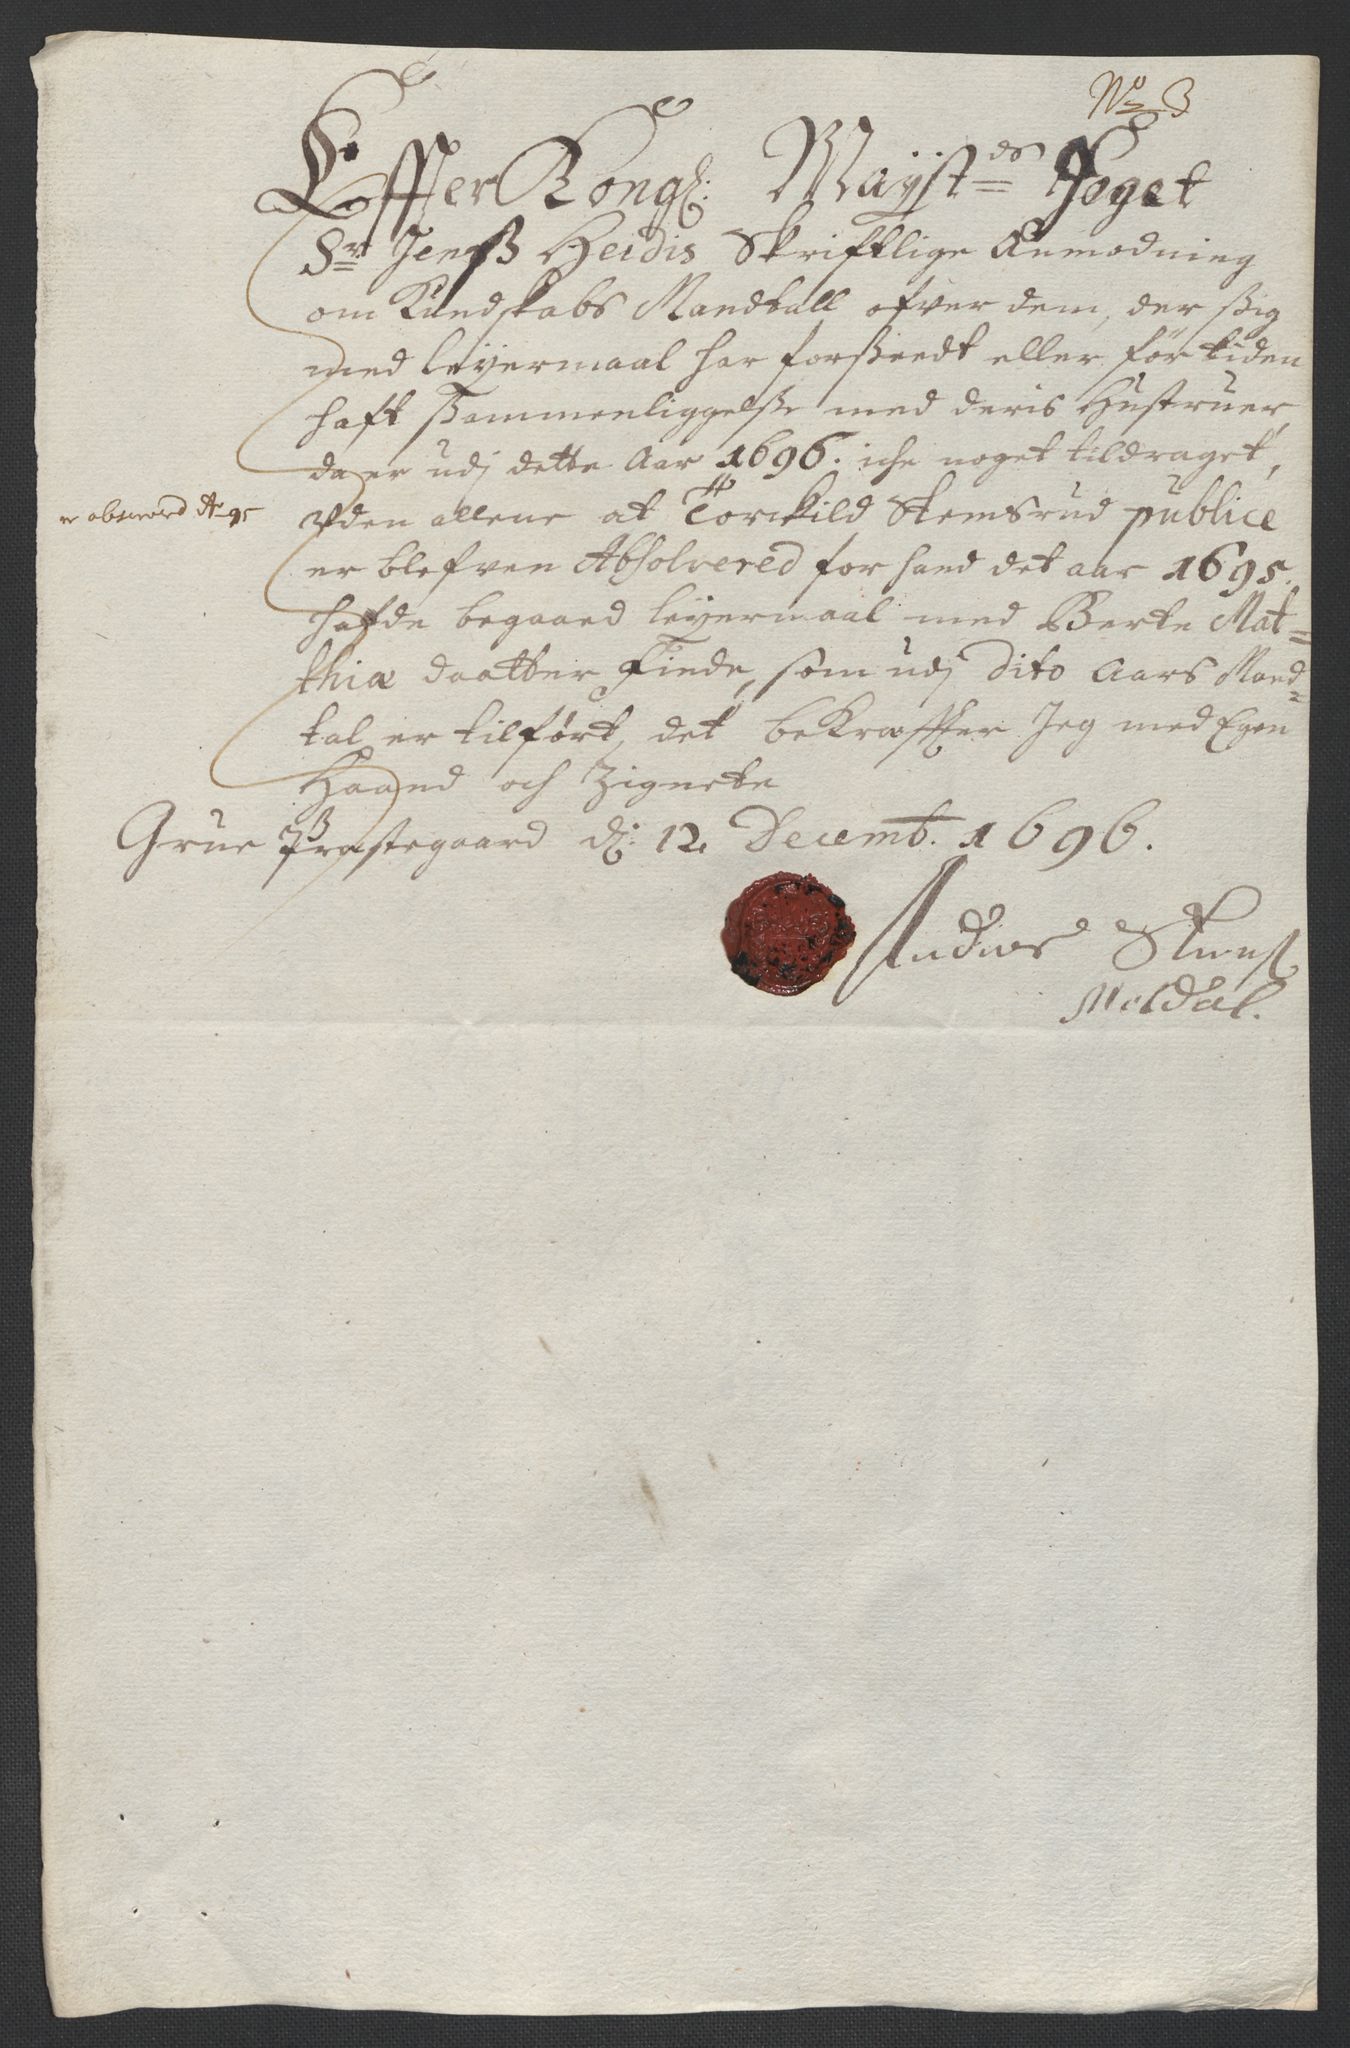 No 3
Effter Kongl: Mayst:ds Foget
Sr Jenß Heidis Skrifftlige Anmodning
om Kundskabs Mandtall ofver dem, der ßig
med leyermaal har forßeedt eller før tiden
hafft ßammenliggelße med deris Hustruer,
da er udj dette Aar 1696. iche noget tildraget,
Uden allene at Torckild Stemsrud publice
er observerd Ao 95
er blefven Absolvered for hand det aar 1695.
hafde begaaed leyermaal med Berte Mat=
thiæ daatter Finde, som udj dito Aars Mand=
tal er tilført, det bekræffter Jeg med Egen
Haand och Zignete
Grue Præstegaard d: 12 Decemb. 1696.
Andreas
Meldal.